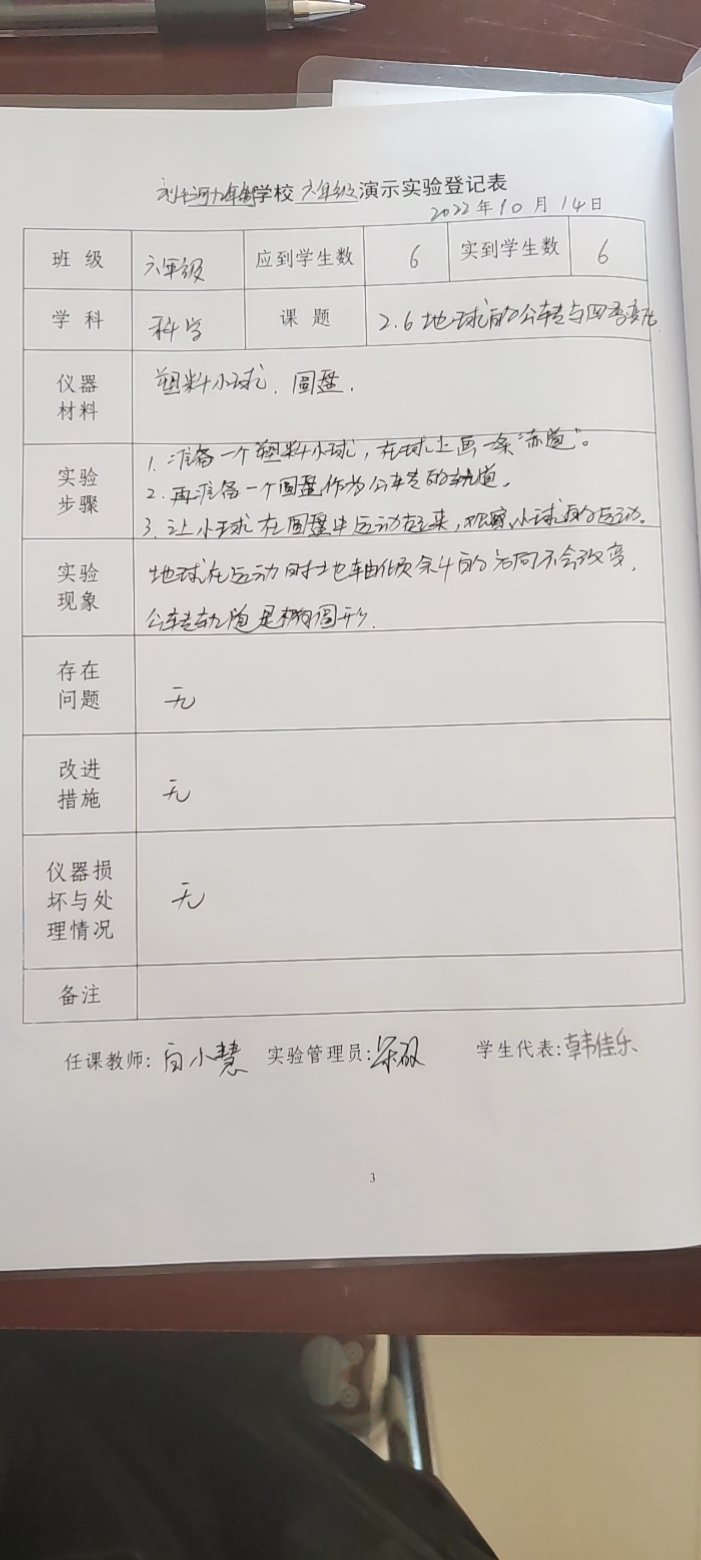 九年制学校 六年级演示实验登记表
2022年10月14日
班 级 六年级 应到学生数 6 实到学生数 6
学 科 科学 课 题 2.6地球的公转与四季变化
仪器
材料
塑料小球、圆盘.
实验
步骤
1. 准备一个塑料小球，在球上画一条“赤道”。
2. 再准备一个圆盘作为公转的轨道。
3. 让小球在圆盘中运动起来，观察小球的运动。
实验
现象
地球在运动时地轴倾斜的方向不会改变，
公转轨道是椭圆形.
存在
问题
无
改进
措施
无
仪器损
坏与处
理情况
无
备注
任课教师: 白小慧 实验管理员: 学生代表: 韩佳乐
3